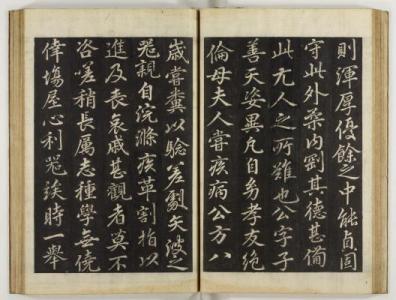 則渾厚優餘之中能貞固
守此外柔內剛其德甚備
此尤人之所難也公字子
善天姿異凡自多孝友絕
倫母夫人嘗疾病公方八
歲嘗糞以驗差劇矢溲之
器親自浣滌一疾革割指以
進及喪哀戚甚觀者莫不
咨嗟稍長屬志種學無僥
倖塲屋心利器俟時一舉